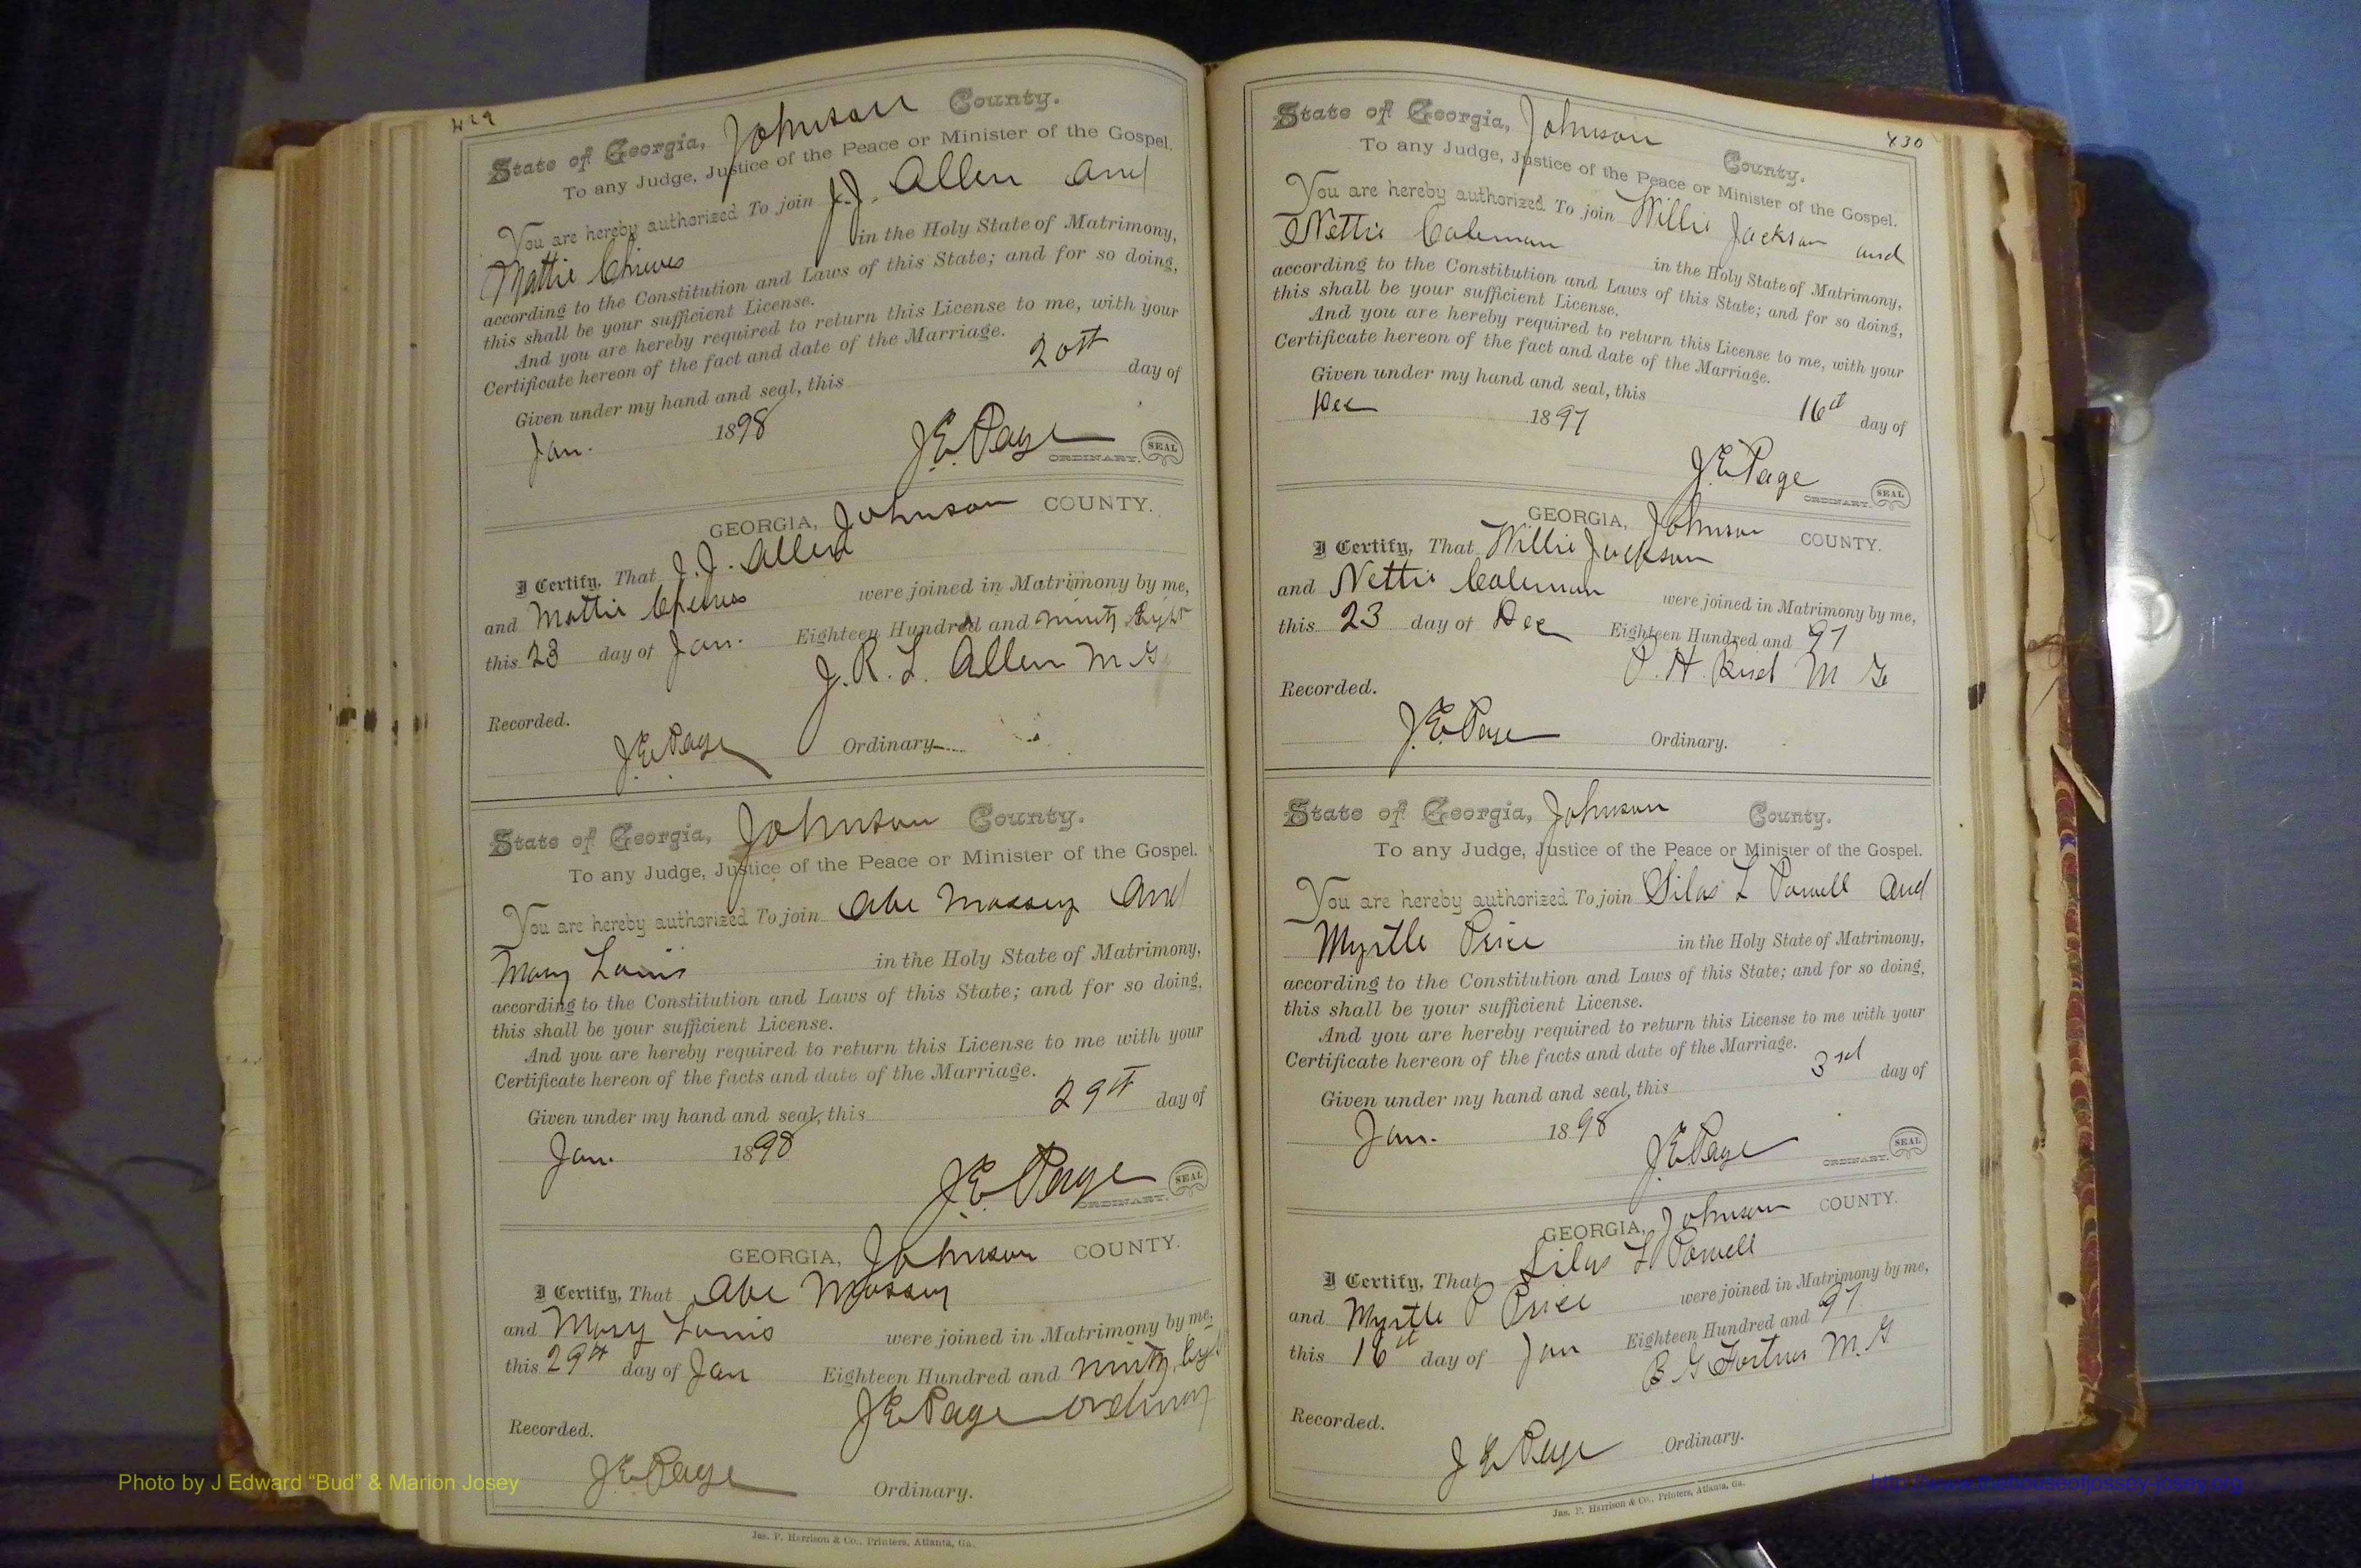 429
State of Georgia, Johnson County.
To any Judge, Justice of the Peace or Minister of the Gospel.
You are hereby authorized To join J. J. Allen and
Mattie in the Holy State of Matrimony,
according to the Constitution and Laws of this State; and for so doing,
this shall be your sufficient License.
And you are hereby required to return this License to me, with your
Certificate hereon of the fact and date of the Marriage.
Given under my hand and seal, this 20th day of
Jan. 1898
J. E. Page
ORDINARY. SEAL
GEORGIA, Johnson COUNTY.
I Certify, That J. J. Allen
and Mattie were joined in Matrimony by me,
this 23 day of Jan. Eighteen Hundred and ninety Eight
J. R. L. Allen M G
Recorded.
J. E. Page Ordinary
State of Georgia, Johnson County.
To any Judge, Justice of the Peace or Minister of the Gospel.
You are hereby authorized To join Abe Massey and
Mary in the Holy State of Matrimony,
according to the Constitution and Laws of this State; and for so doing,
this shall be your sufficient License.
And you are hereby required to return this License to me with your
Certificate hereon of the facts and date of the Marriage.
Given under my hand and seal, this 29th day of
Jan. 1898
J. E. Page
ORDINARY. SEAL
GEORGIA, Johnson COUNTY.
I Certify, That Abe Massey
and Mary were joined in Matrimony by me,
this 29th day of Jan Eighteen Hundred and ninty
J E Page ordinary
Recorded.
J E Page Ordinary.
Jas. P. Harrison & Co., Printers, Atlanta, Ga.
430
State of Georgia, Johnson County.
To any Judge, Justice of the Peace or Minister of the Gospel.
You are hereby authorized To join Willie Jackson and
Nettie Coleman in the Holy State of Matrimony,
according to the Constitution and Laws of this State; and for so doing,
this shall be your sufficient License.
And you are hereby required to return this License to me, with your
Certificate hereon of the fact and date of the Marriage.
Given under my hand and seal, this 16th day of
Dec 1897
J. E. Page
ORDINARY. SEAL
GEORGIA, Johnson COUNTY.
I Certify, That Willie Jackson
and Nettie Coleman were joined in Matrimony by me,
this 23 day of Dec Eighteen Hundred and 97
H. M G
Recorded.
J. E. Page Ordinary.
State of Georgia, Johnson County.
To any Judge, Justice of the Peace or Minister of the Gospel.
You are hereby authorized To join Silas L Powell and
Myrtle Price in the Holy State of Matrimony,
according to the Constitution and Laws of this State; and for so doing,
this shall be your sufficient License.
And you are hereby required to return this License to me with your
Certificate hereon of the facts and date of the Marriage.
Given under my hand and seal, this 3rd day of
Jan. 1898
J. E. Page
ORDINARY. SEAL
GEORGIA, Johnson COUNTY.
I Certify, That Silas L Powell
and Myrtle P Price were joined in Matrimony by me,
this 16th day of Jan Eighteen Hundred and 97
B G Fortner M. G
Recorded.
J E Page Ordinary.
Jas. P. Harrison & Co., Printers, Atlanta, Ga.
Photo by J Edward “Bud” & Marion Josey
http://www.thehouseofjossey-josey.org